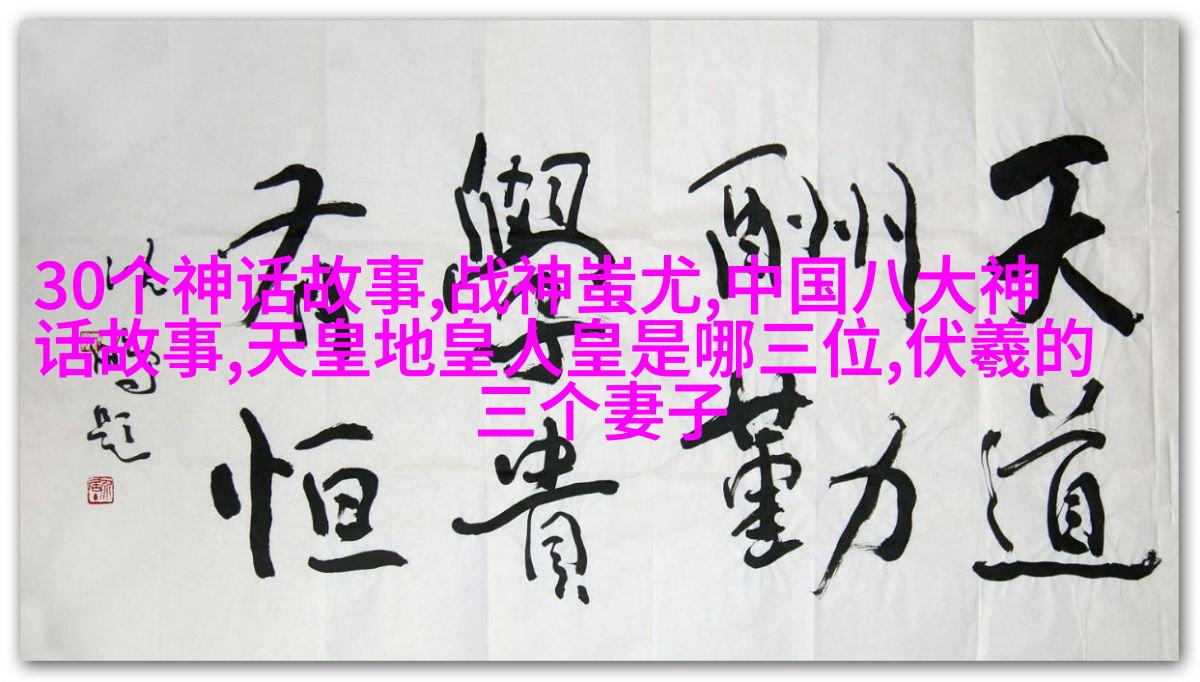 30个神话故事,战神蚩尤,中国八大神
话故事,天皇地皇人皇是哪三位,伏羲的
三个妻子
天道
酬勤
學貴
有恒
沈鹏题